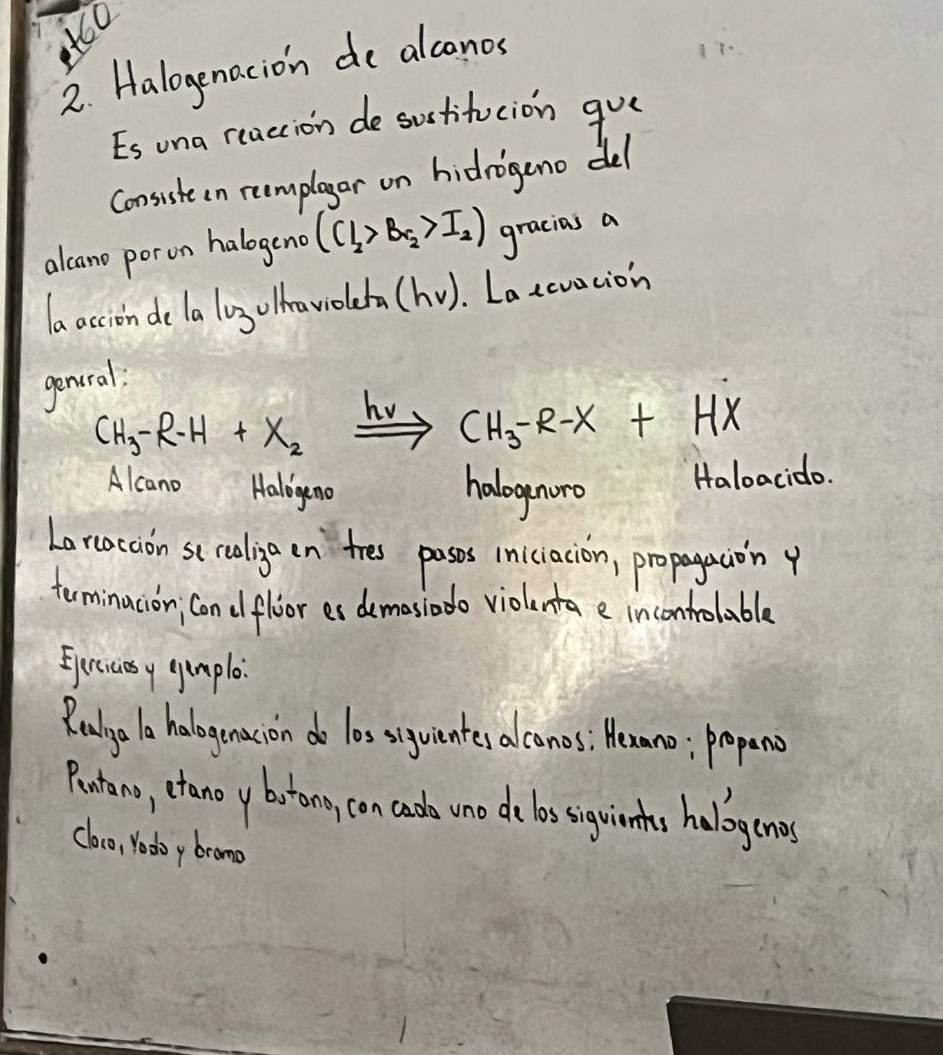 2. Halogenación de alcanos
Es una reacción de sustitución que
Consiste en reemplazar un hidrógeno del
alcano por un halogeno (Cl₂>Br₂>I₂) gracias a
la acción de la luz ultravioleta (hv). La ecuación
general:
CH₃-R-H + X₂ hv⟹ CH₃-R-X + HX
Alcano Halógeno halogenuro Haloacido.
La reacción se realiza en tres pasos iniciación, propagación y
terminación; Con el flúor es demasiado violenta e incontrolable
Ejercicios y ejemplo:
Realiza la halogenación de los siguientes alcanos: Hexano; propano
Pentano, etano y butano, con cada uno de los siguientes halógenos
cloro, Yodo y bromo